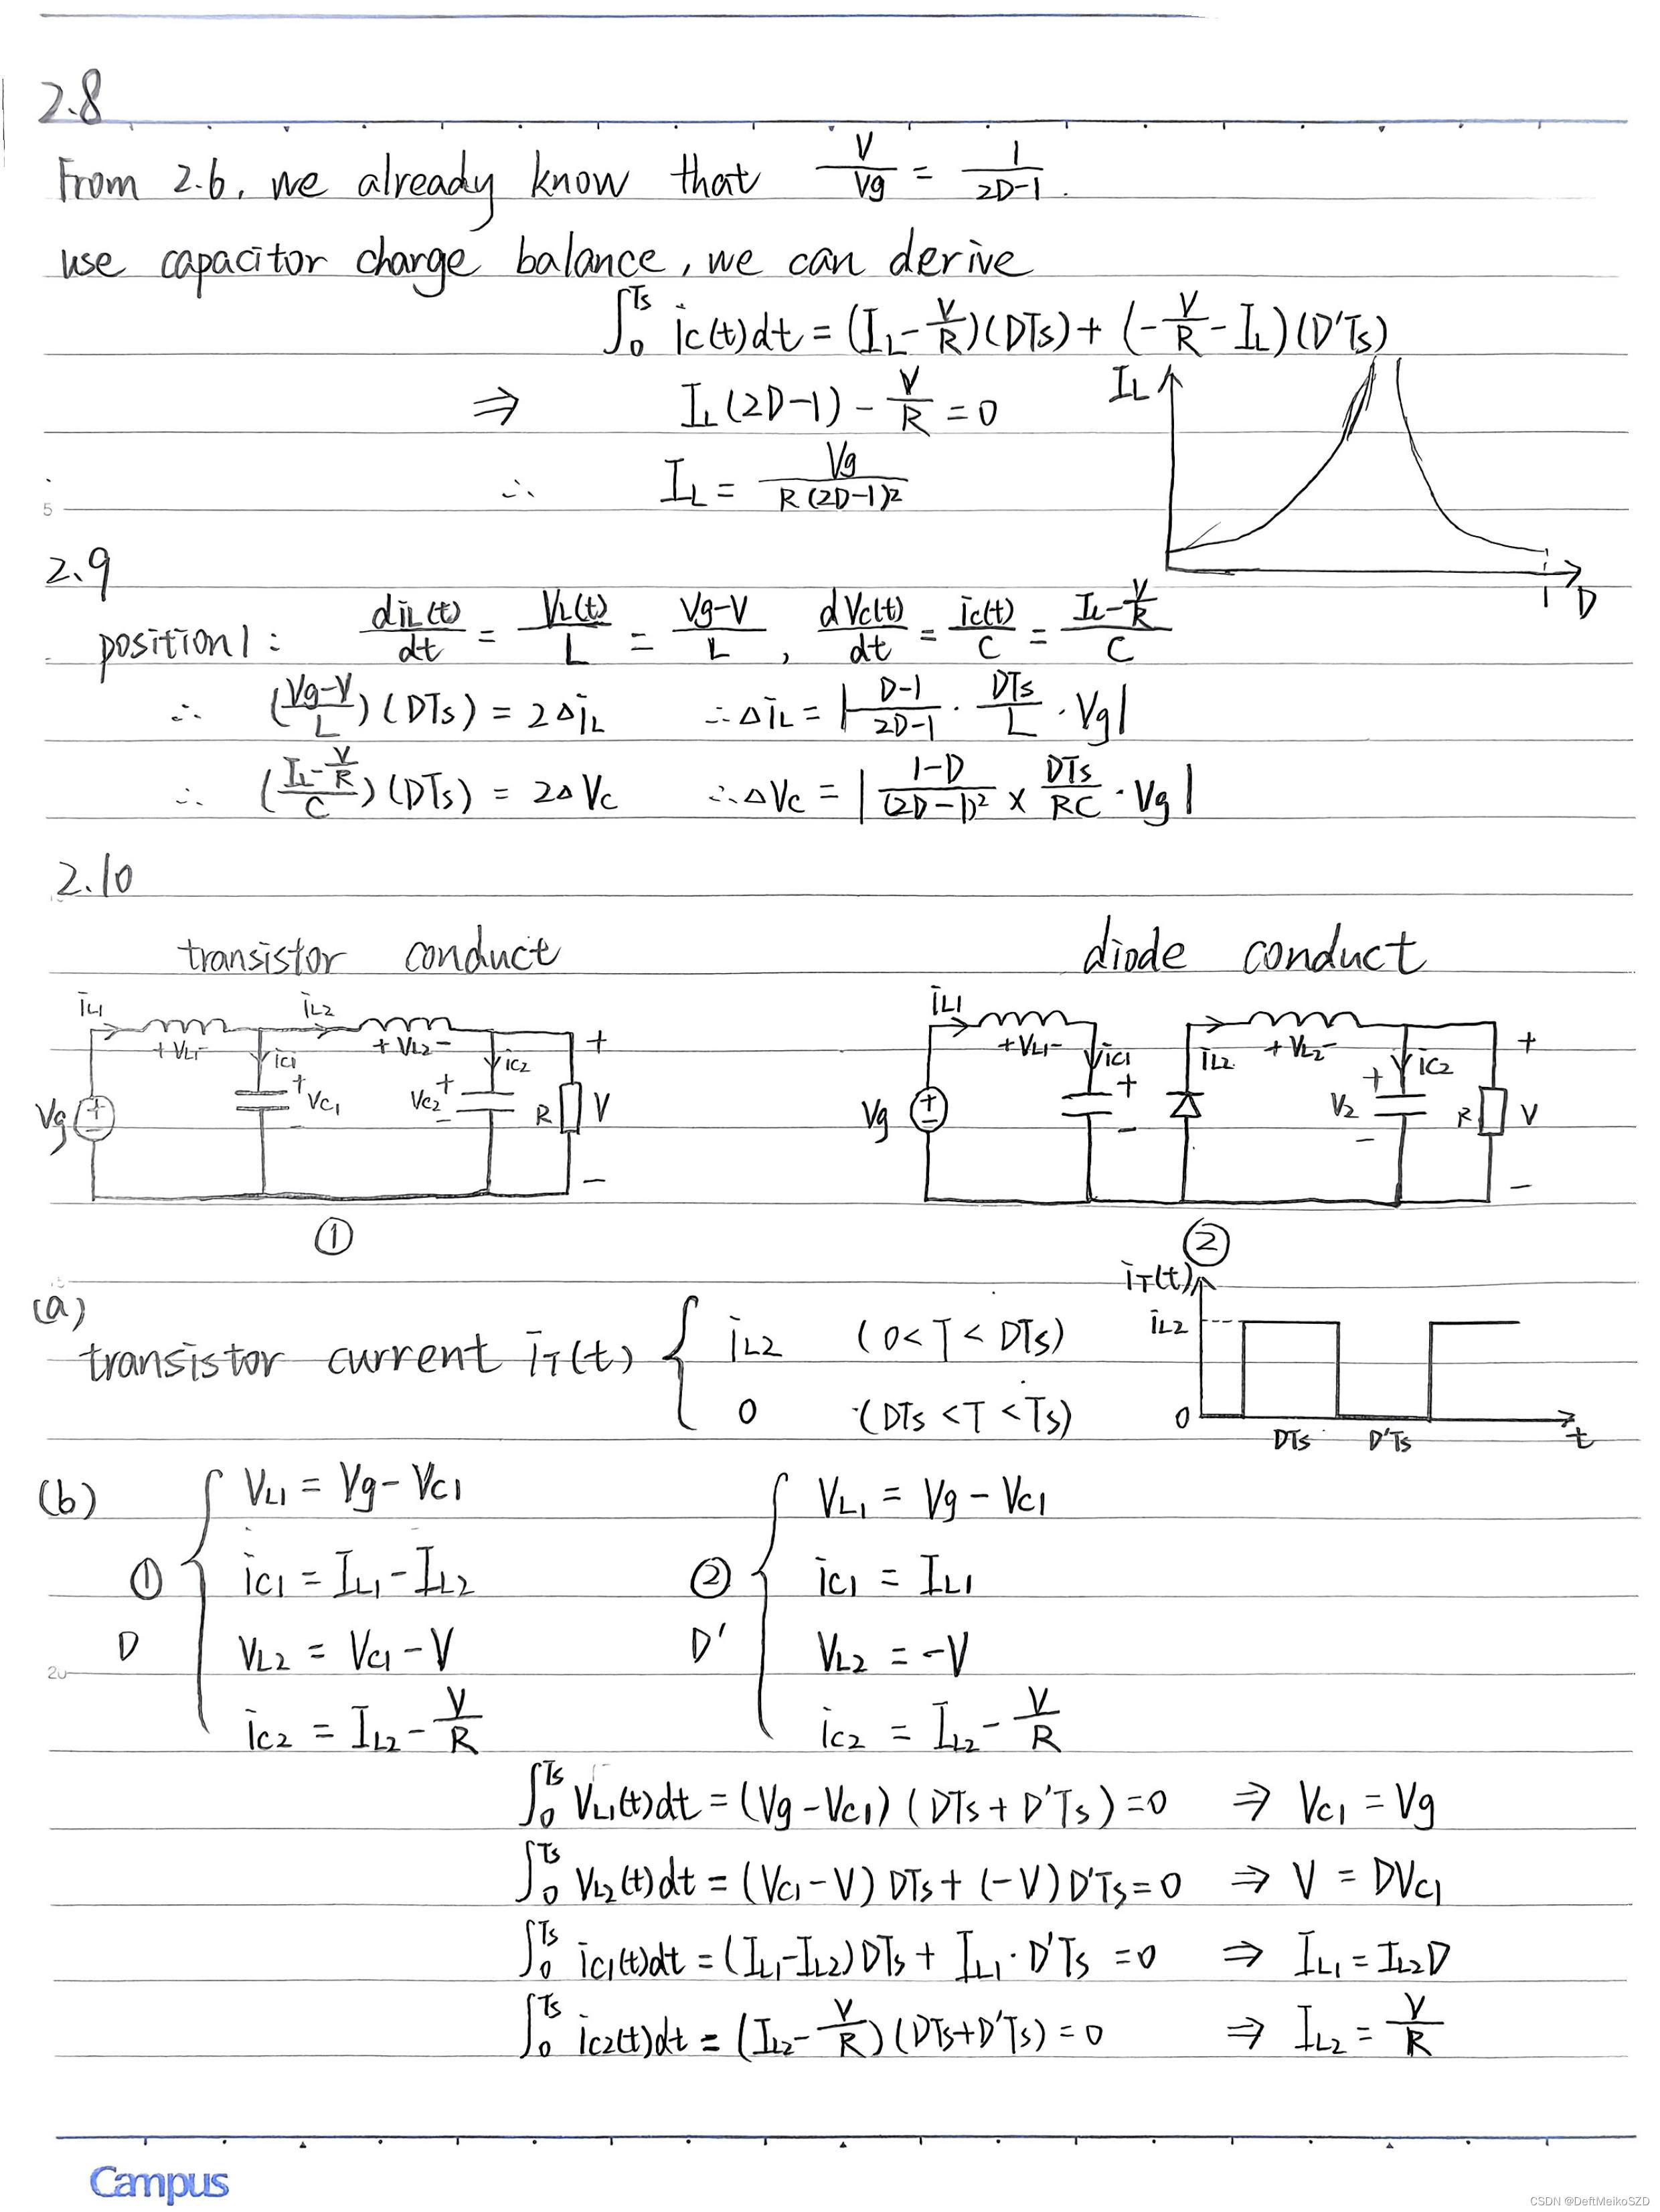 2.8
From 2.6, we already know that V/Vg = 1/(2D-1).
use capacitor charge balance, we can derive
∫₀^Ts ic(t)dt = (IL - V/R)(DTs) + (-V/R - IL)(D'Ts)
⇒ IL(2D-1) - V/R = 0
∴ IL = Vg/(R(2D-1)²)
IL
1 D
5
2.9
position1: diL(t)/dt = VL(t)/L = (Vg-V)/L , dVc(t)/dt = ic(t)/C = (IL - V/R)/C
∴ ((Vg-V)/L)(DTs) = 2ΔiL ∴ΔiL = |(D-1)/(2D-1) · DTs/L · Vg|
∴ ((IL - V/R)/C)(DTs) = 2ΔVc ∴ΔVc = |(1-D)/(2D-1)² × DTs/RC · Vg|
2.10
transistor conduct
diode conduct
iL1 iL2
+ VL1 - + VL2 -
ic1 ic2
Vg + - + VC1 - VC2 + - R V + -
①
iL1 iL2
+ VL1 - + VL2 -
ic1 ic2
Vg + - + - V2 + - R V + -
②
(a)
transistor current iT(t) { iL2 (0<T<DTs)
0 (DTs<T<Ts)
iT(t)
iL2
0 DTs D'Ts t
(b)
① D { VL1 = Vg - VC1
ic1 = IL1 - IL2
VL2 = VC1 - V
ic2 = IL2 - V/R
② D' { VL1 = Vg - VC1
ic1 = IL1
VL2 = -V
ic2 = IL2 - V/R
20
∫₀^Ts VL1(t)dt = (Vg - VC1)(DTs + D'Ts) = 0 ⇒ VC1 = Vg
∫₀^Ts VL2(t)dt = (VC1 - V)DTs + (-V)D'Ts = 0 ⇒ V = DVC1
∫₀^Ts ic1(t)dt = (IL1 - IL2)DTs + IL1·D'Ts = 0 ⇒ IL1 = IL2D
∫₀^Ts ic2(t)dt = (IL2 - V/R)(DTs + D'Ts) = 0 ⇒ IL2 = V/R
Campus
CSDN @DeftMeikoSZD